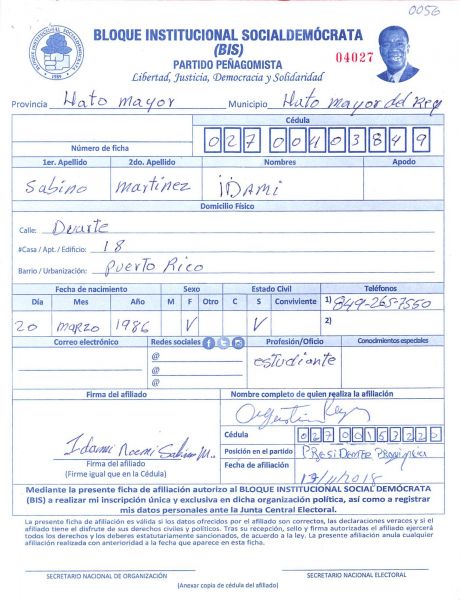 0056
BLOQUE INSTITUCIONAL SOCIALDEMÓCRATA
(BIS)
PARTIDO PEÑAGOMISTA
Libertad, Justicia, Democracia y Solidaridad
04027
BLOQUE INSTITUCIONAL SOCIALDEMOCRATA
1989
Provincia Hato mayor Municipio Hato mayor del Rey
Cédula
Número de ficha 027 0040384 9
1er. Apellido 2do. Apellido Nombres Apodo
Sabino martinez IDAMI
Domicilio Físico
Calle: Duarte
#Casa / Apt. / Edificio: 18
Barrio / Urbanización: Puerto Rico
Fecha de nacimiento Sexo Estado Civil Teléfonos
Día Mes Año M F Otro C S Conviviente 1) 849-265-7550
20 marzo 1986 V V 2)
Correo electrónico Redes sociales Profesión/Oficio Conocimientos especiales
@ estudiante
@
@
Firma del afiliado Nombre completo de quien realiza la afiliación
Cédula
Idami Noemi Sabino M. Posición en el partido Presidente Provincia
Firma del afiliado Fecha de afiliación
(Firme igual que en la Cédula) 17/11/2018
Mediante la presente ficha de afiliación autorizo al BLOQUE INSTITUCIONAL SOCIAL DEMÓCRATA
(BIS) a realizar mi inscripción única y exclusiva en dicha organización política, así como a registrar
mis datos personales ante la Junta Central Electoral.
La presente ficha de afiliación es válida si los datos ofrecidos por el afiliado son correctos, las declaraciones veraces y si el
afiliado tiene el disfrute de sus derechos civiles y políticos. Tras su recepción, sello y firma autorizada el afiliado ejercerá
todos los derechos y los deberes estatutariamente sancionados, de acuerdo a la ley. La presente afiliación anula cualquier
afiliación realizada con anterioridad a la fecha que aparece en esta ficha.
SECRETARIO NACIONAL DE ORGANIZACIÓN SECRETARIO NACIONAL ELECTORAL
(Anexar copia de cédula del afiliado)